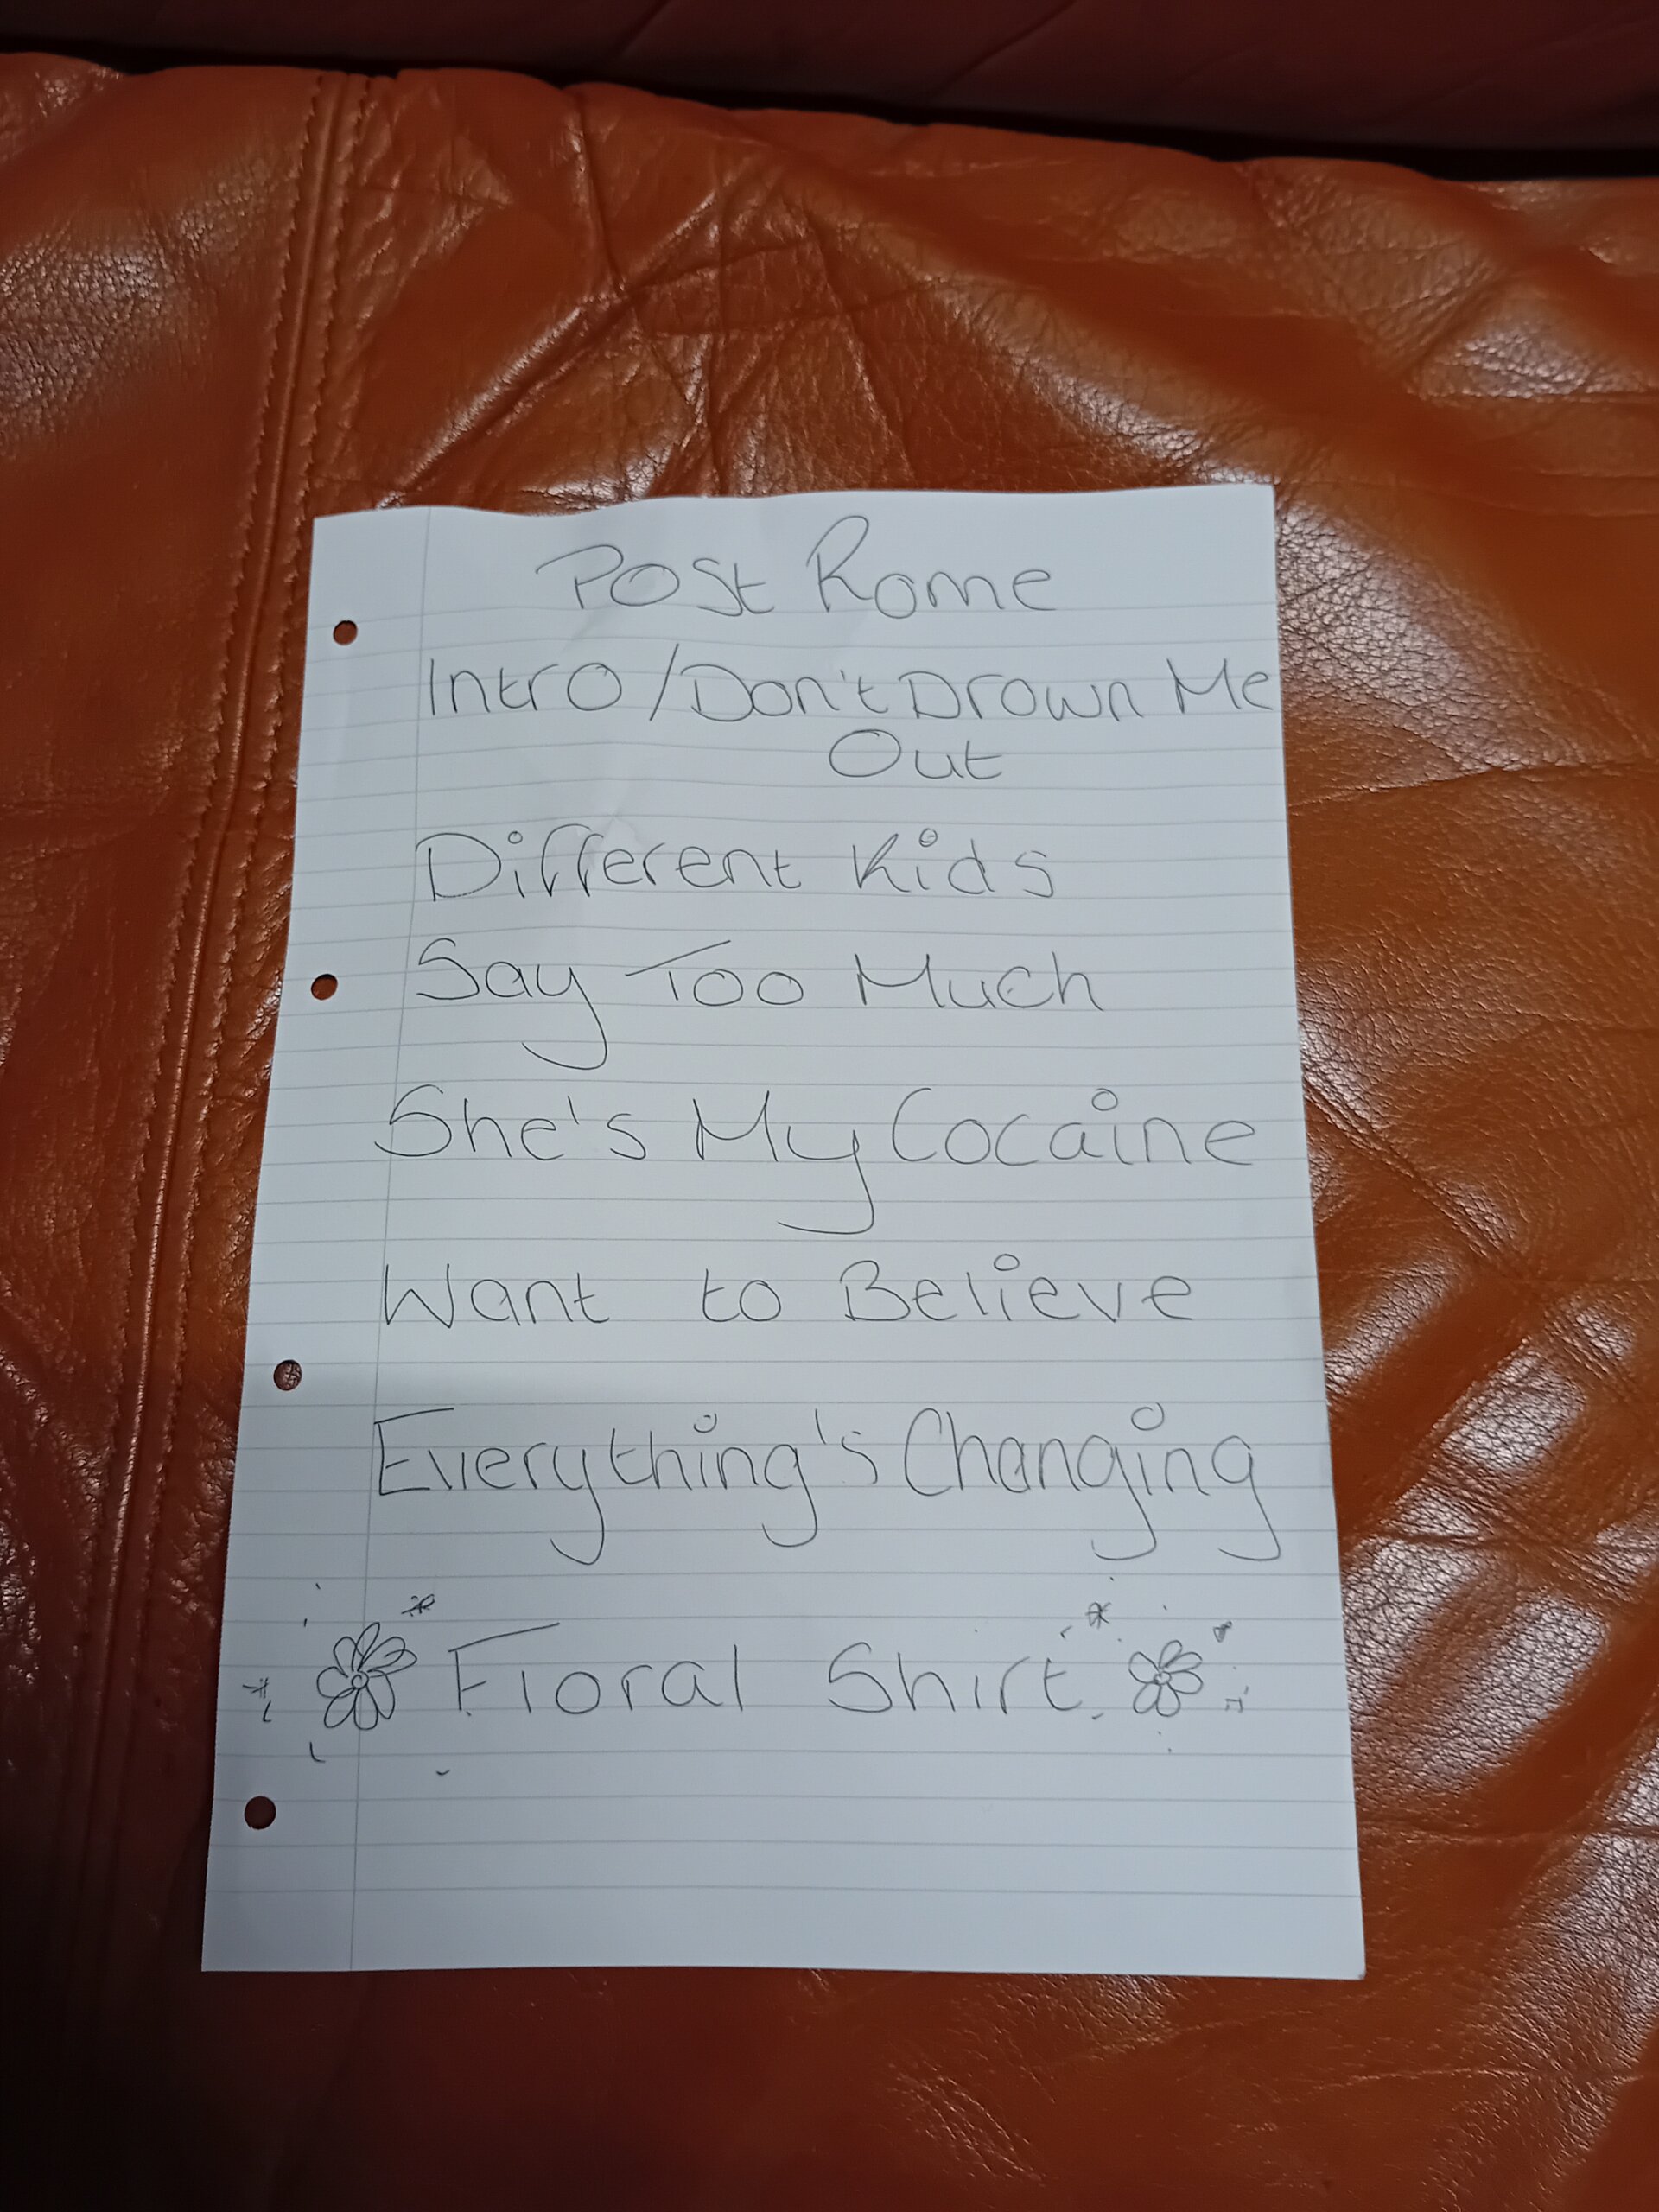 Post Rome
Intro/Don't Drown Me
Out
Different Kids
Say Too Much
She's My Cocaine
Want to Believe
Everything's Changing
Floral Shirt